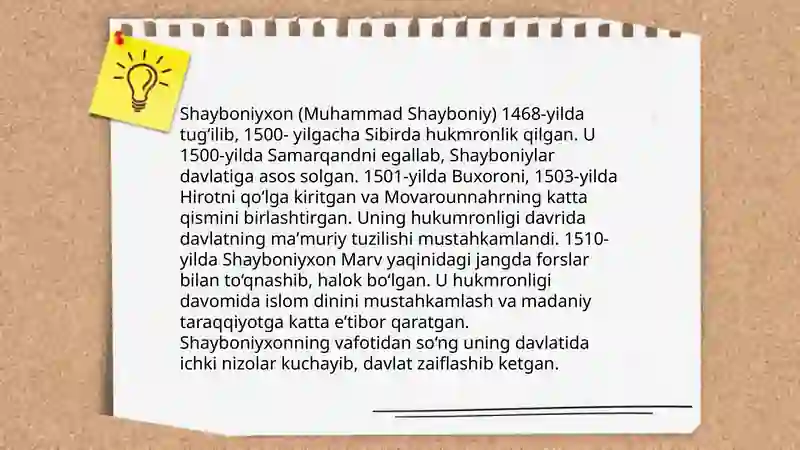 Shayboniyxon (Muhammad Shayboniy) 1468-yilda
tug‘ilib, 1500- yilgacha Sibirda hukmronlik qilgan. U
1500-yilda Samarqandni egallab, Shayboniylar
davlatiga asos solgan. 1501-yilda Buxoroni, 1503-yilda
Hirotni qo‘lga kiritgan va Movarounnahrning katta
qismini birlashtirgan. Uning hukumronligi davrida
davlatning ma’muriy tuzilishi mustahkamlandi. 1510-
yilda Shayboniyxon Marv yaqinidagi jangda forslar
bilan to‘qnashib, halok bo‘lgan. U hukmronligi
davomida islom dinini mustahkamlash va madaniy
taraqqiyotga katta e’tibor qaratgan.
Shayboniyxonning vafotidan so‘ng uning davlatida
ichki nizolar kuchayib, davlat zaiflashib ketgan.